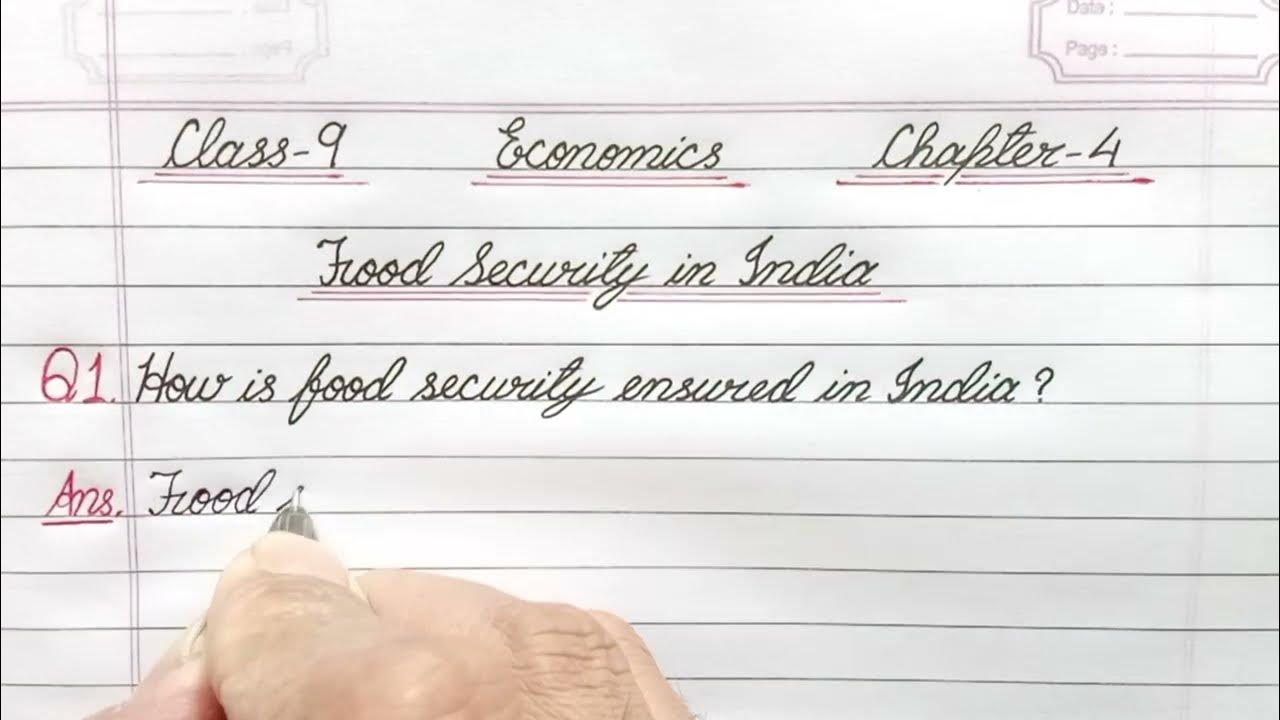 Date :
Page :
Class-9 Economics Chapter-4
Food Security in India
Q1. How is food security ensured in India ?
Ans. Food